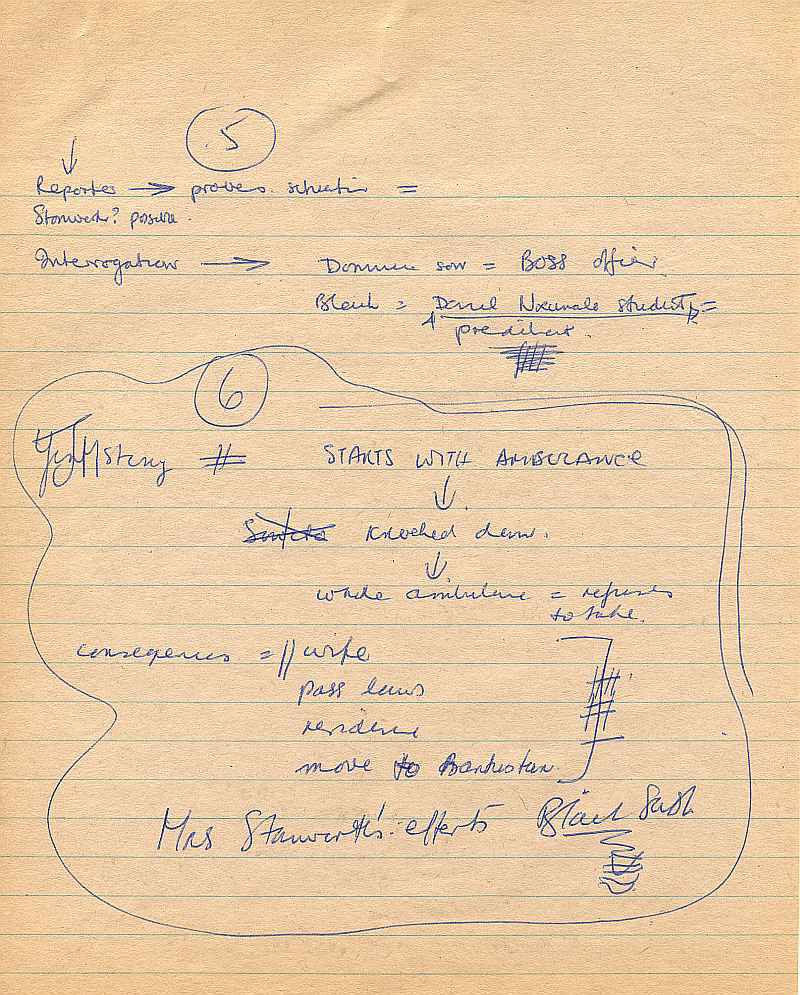 5
Reporter → proves situation =
Stanworth? possible.
Interrogation → Dominee son = BOSS officer.
Black = student =
6
Story # STARTS WITH AMBULANCE
↓
knocked down.
↓
white ambulance = refuses
to take.
consequences = // wife
pass laws
residence
move to Bantustan.
Mrs Stanworth's efforts Black Sash